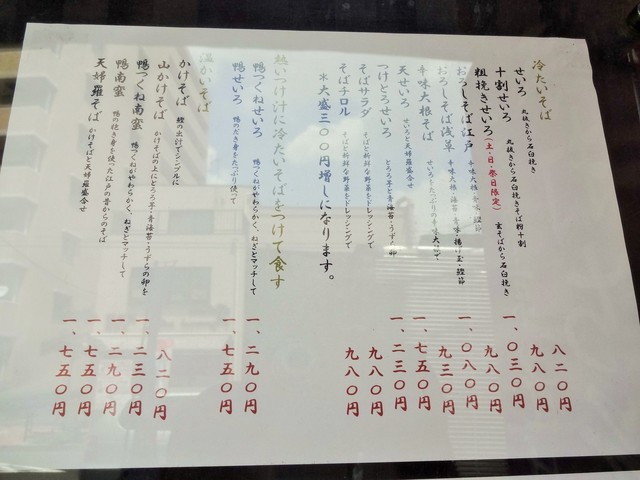 冷たいそば
せいろ 丸抜きから石臼挽き 八二〇円
十割せいろ 丸抜きから石臼挽きそば粉十割 九八〇円
粗挽きせいろ(土・日・祭日限定) 玄そばから石臼挽き 一、〇三〇円
おろしそば江戸 辛味大根・海苔 九八〇円
おろしそば浅草 辛味大根・海苔・揚げ玉・鰹節 一、〇八〇円
辛味大根そば せいろをたっぷりの辛味大根で 九三〇円
天せいろ せいろと天婦羅盛合せ 一、七五〇円
つけとろせいろ とろろ芋と青海苔・うずら卵 一、二三〇円
そばサラダ そばと新鮮な野菜をドレッシングで 九八〇円
そばチロル そばと新鮮な野菜をドレッシングで 九八〇円
*大盛三〇〇円増しになります。
熱いつけ汁に冷たいそばをつけて食す
鴨つくねせいろ 鴨つくねがやわらかく、ねぎとマッチして 一、二九〇円
鴨せいろ 鴨のだき身をたっぷり使って 一、七五〇円
温かいそば
かけそば 鰹の出汁でシンプルに 八二〇円
山かけそば かけそばの上にとろろ芋・青海苔・うずらの卵を 一、二三〇円
鴨つくね南蛮 鴨つくねがやわらかく、ねぎとマッチして 一、二九〇円
鴨南蛮 鴨の抱き身を使った江戸の昔からのそば 一、七五〇円
天婦羅そば かけそばと天婦羅盛合せ 一、七五〇円